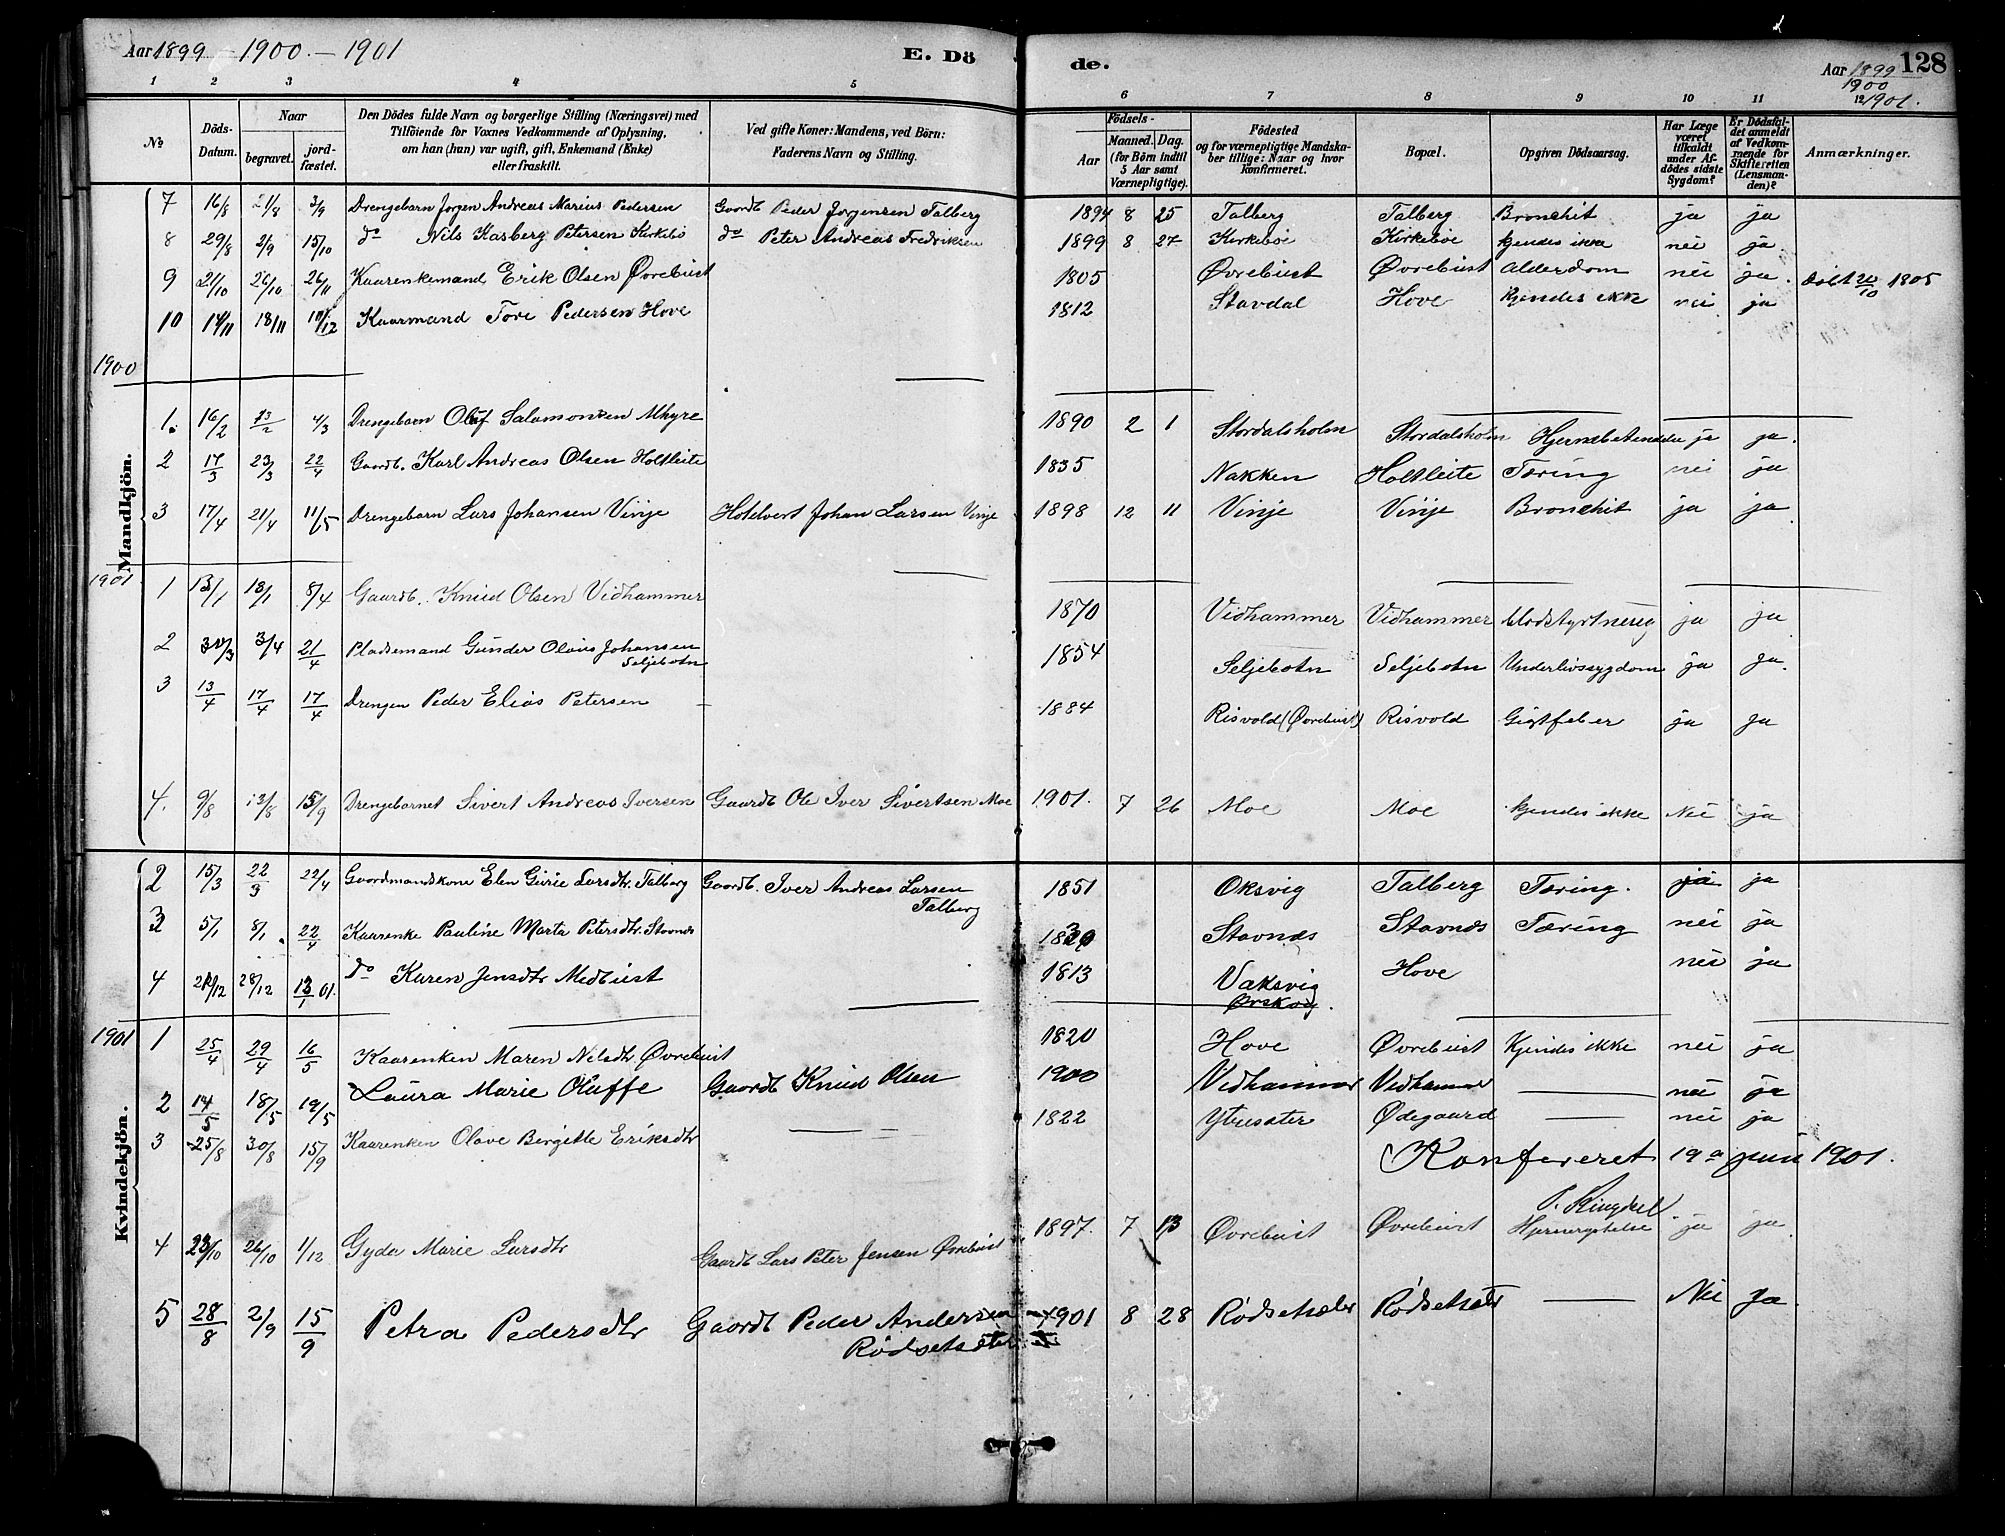 Aar 1899 - 1900. - 1901
E. Dö
de.
128
Aar 1899
1900
1901.
1 2 3 4 5 6 7 8 9 10 11 12
No
Döds-Datum.
Naar
begravet.
jord-fæstet.
Den Dödes fulde Navn og borgerlige Stilling (Næringsvei) med
Tilföiende for Voxnes Vedkommende af Oplysning,
om han (hun) var ugift, gift, Enkemand (Enke)
eller fraskilt.
Ved gifte Koner: Mandens, ved Börn:
Faderens Navn og Stilling.
Födsels-
Aar
Maaned. Dag.
(for Börn indtil
5 Aar samt
Værnepligtige).
Födested
og for værnepligtige Mandska-
ber tillige: Naar og hvor
konfirmeret.
Bopæl.
Opgiven Dödsaarsag.
Har Læge
været
tilkaldt
under Af-
dödes sidste
Sygdom?
Er Dödsfal-
det anmeldt
af Vedkom-
mende for
Skifteretten
(Lensman-
den)?
Anmærkninger.
Mandkjön.
7 16/8 21/8 3/9 Drengebarn Jørgen Andreas Marius Pedersen Gaardb Peder Jørgensen Talberg 1894 8 25 Talberg Talberg Bronchit ja ja
8 29/8 2/9 15/10 do Nils Kasberg Petersen Kirkebø do Peter Andreas Fredriksen 1899 8 27 Kirkebøe Kirkebøe kjendes ikke nei ja.
9 21/10 26/10 26/11 Kaarenkemand Erik Olsen Øvrebust 1805 Øvrebust Øvrebust Alderdom nei ja. døbt 20/10 1805
10 14/11 18/11 10/12 Kaarmand Tore Pedersen Hove 1812 Stavdal Hove kjendes ikke nei ja
1900
1. 16/2 23/2 4/3 Drengebarn Oluf Salamonsen Mhyre 1890 2 1 Stordalsholm Stordalsholm Hjernebetændelse ja ja.
2 17/3 23/3 22/4 Gaardb. Karl Andreas Olsen Holtleite 1835 Nakken Holtleite Tæring nei ja
3 17/4 21/4 11/5 Drengebarn Lars Johansen Vinje Hotelvert Johan Larsen Vinje 1898 12 11 Vinje Vinje Bronchit ja ja
1901
1 13/1 18/1 8/4 Gaardb. Knud Olsen Vidhammer 1870 Vidhammer Vidhammer Blodstyrtneseg ja ja
2 30/3 3/4 21/4 Pladsemand Gunder Olaus Johansen
Seljebotn 1854 Seljebotn Seljebotn Underlivssygdom ja ja.
3 13/4 17/4 17/4 Drengen Peder Elias Petersen - 1884 Risvold (Øvrebust) Risvold Gigtfeber ja ja
4. 9/8 13/8 15/9 Drengebarnet Sivert Andreas Iversen Gaardb Ole Iver Sivertsen Moe 1901. 7 26 Moe Moe kjendes ikke Nei ja
Kvindekjön.
2 15/3 22/3 22/4 Gaardmandskone Elen Gurie Larsdtr. Talberg Gaardb. Iver Andreas Larsen
Talberg 1851 Oksvig Talberg Tæring. ja ja
3 5/1 8/1 22/4 Kaarenke Pauline Marta Petersdtr. Stavnes 1830 Stavnæs Stavnæs Tæring nei ja
4 21/12 28/12 13/1 01. do Karen Jensdtr Medbust 1813 Vaksvig
Ørskog. Hove nei ja
1901
1 25/4 29/4 16/5 Kaarenken Maren Nilsdtr. Øvrebust 1820 Hove Øvrebust Kjendes ikke nei ja
2 14/5 18/5 19/5 Laura Marie Oluffe Gaardb Knud Olsen 1900 Vidhammer Vidhammer nei ja
3 25/8 30/8 15/9 Kaarenken Olave Bergitte Eriksdtr 1822 Ytresæter Ødegaard nei ja
Konfereret 19a juni 1901.
P. Ringdal
4 23/10 26/10 1/12 Gyda Marie Larsdtr Gaardb Lars Peter Jensen Øvrebust 1897. 7 13 Øvrebust Øvrebust Hjernerystelse ja ja
5 28/8 2/9 15/9 Petra Pedersdtr Gaardb Peder Andersen
Rødsetsæter 1901 8 28 Rødsetsæter Rødsetsæter Nei Ja.